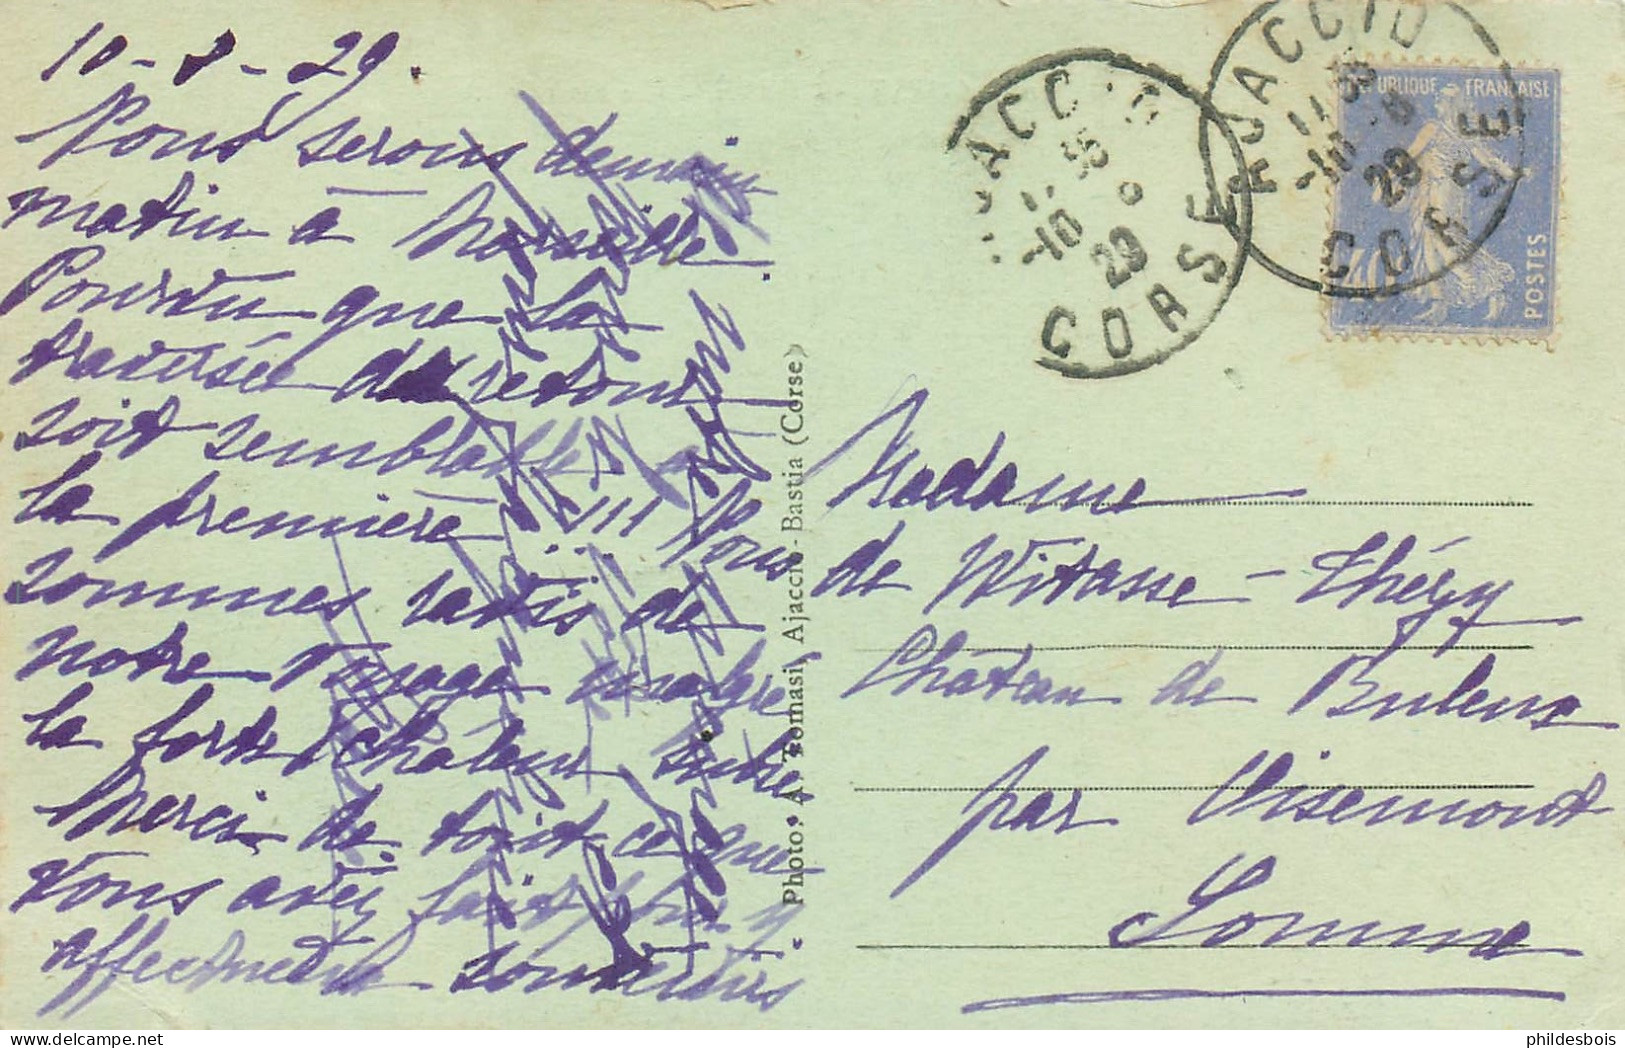 10-8-29.
Nous serons demain
matin à Marseille.
Pourvu que la
traversée de retour
soit semblable à
la première...!!! Nous
sommes ravis de
notre voyage malgré
la forte chaleur subie
Merci de tout ce que
vous avez fait pour
affectueux souvenirs
Photo. A. Tomasi, Ajaccio-Bastia (Corse)
AJACCIO
11 55
-10 8
29
CORSE
AJACCIO
11 55
-10 8
29
CORSE
REPUBLIQUE FRANÇAISE
40
POSTES
Madame
de Witasse-Thézy
Château de Buleux
par Oisemont
Somme
phildesbois